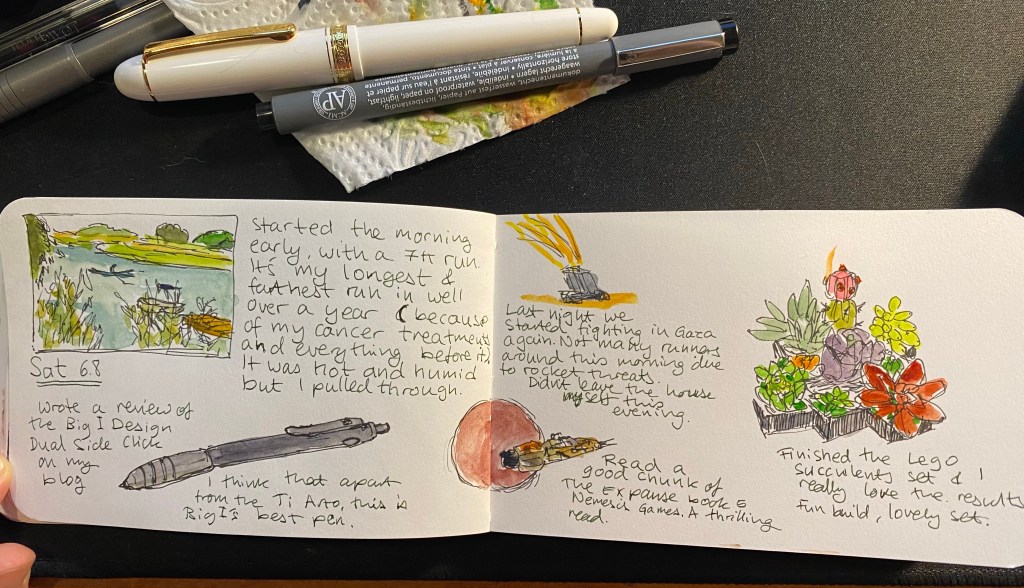 dokumentenecht, wasserfest auf Papier, lichtbeständig,
waagerecht lagern • indelible, waterproof on paper, lightfast,
store horizontally • indélébile, résistant à l'eau sur papier et
à la lumière, conserver à plat • tinta documental, permanente
AP
Started the morning
early, with a 7k run.
It's my longest &
farthest run in well
over a year (because
of my cancer treatments
and everything before it)
It was hot and humid
but I pulled through.
Sat 6.8
Wrote a review of
the Big I Design
Dual Side Click
on my
blog
I think that apart
from the Ti Arto, this is
Big I's best pen.
Last night we
started fighting in Gaza
again. Not many runners
around this morning due
to rocket threats.
Didn't leave the house
myself this
evening.
Read a
good chunk of
The Expanse book 5
Nemesis Games. A thrilling
read.
Finished the Lego
succulents set & I
really love the results
Fun build, lovely set.